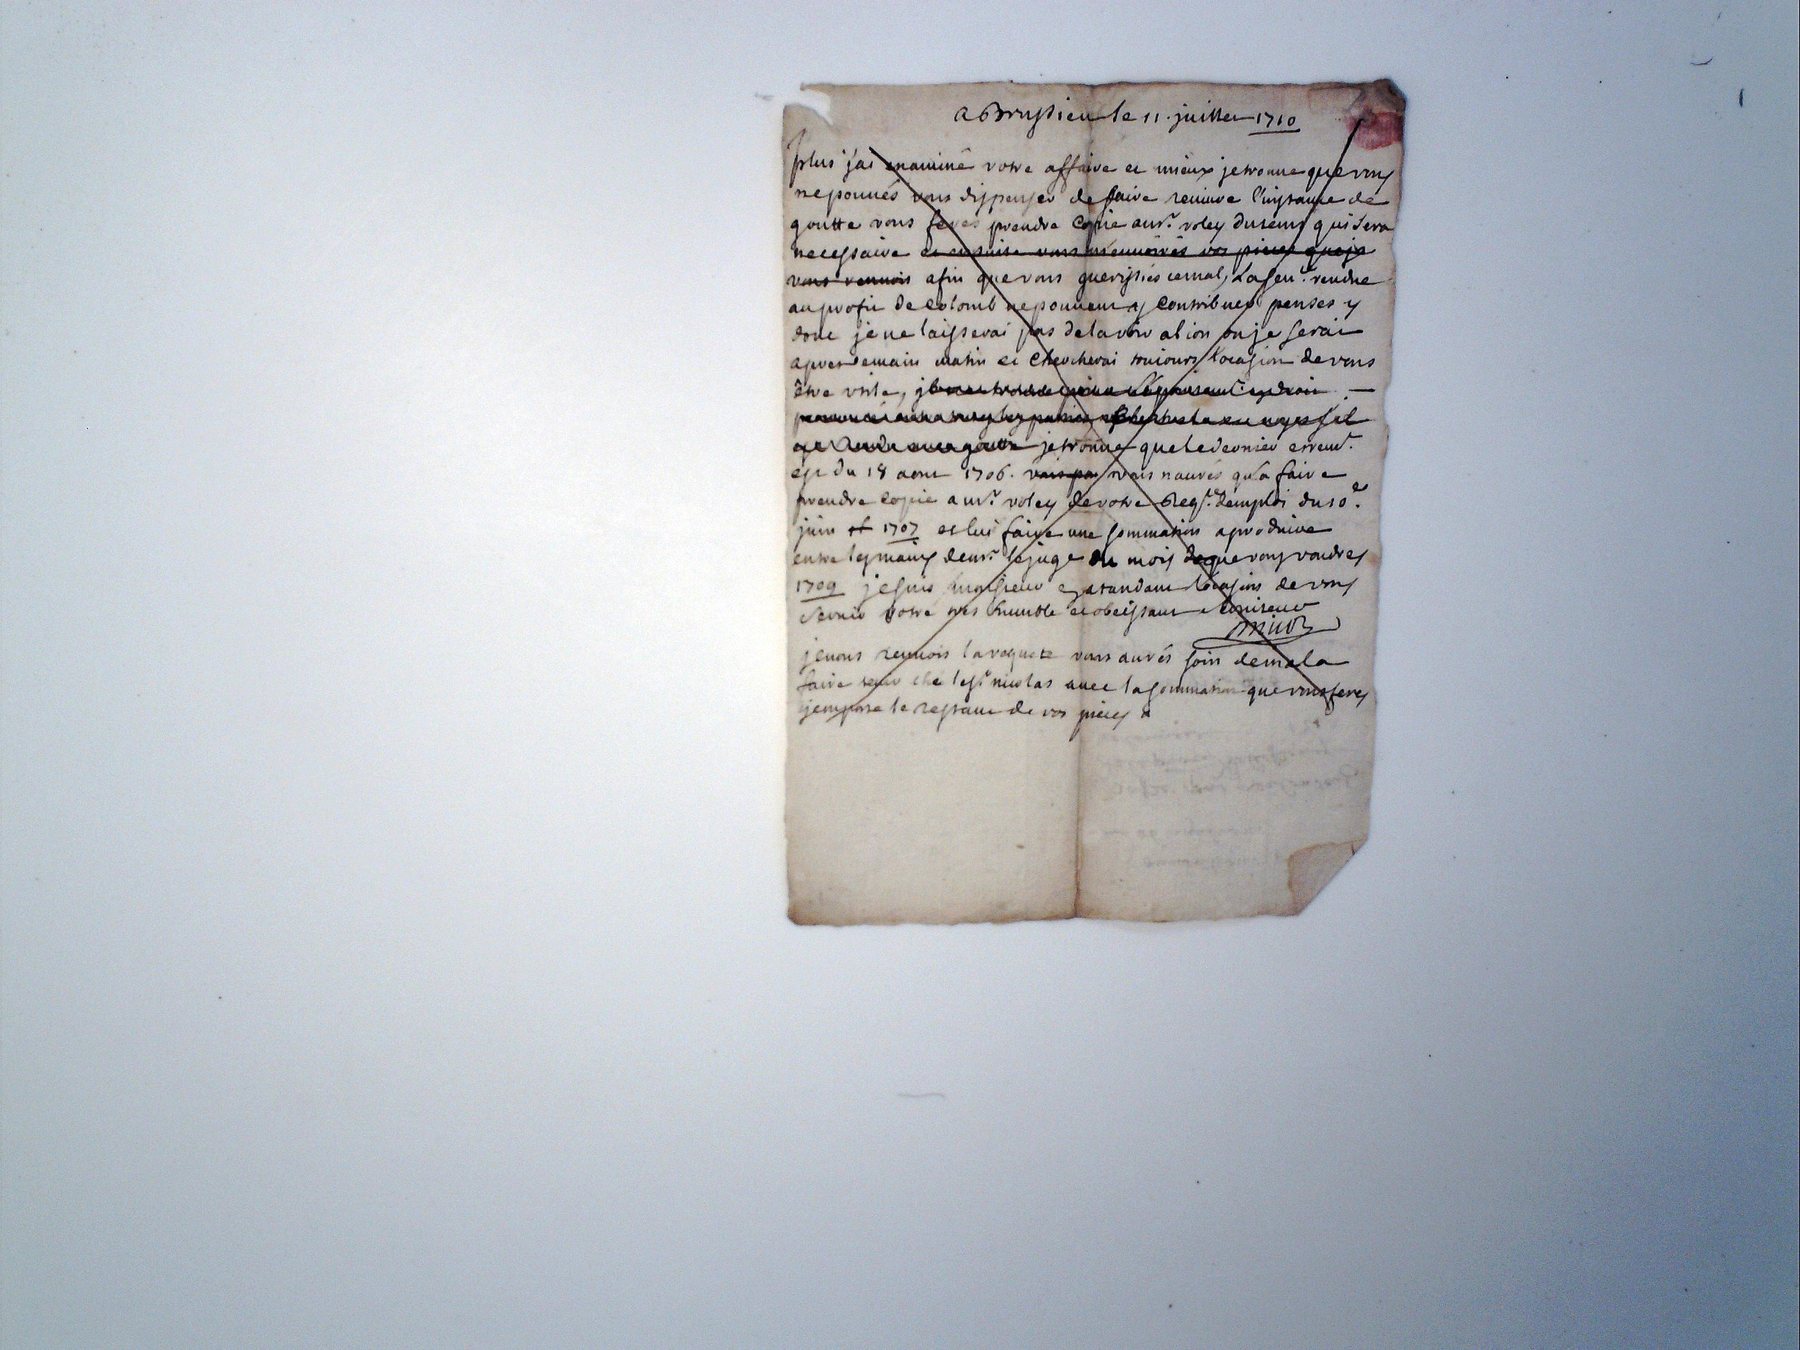 a Brussieu le 11 juillet 1710
plus j'ai examiné votre affaire et mieux je trouve que vous
ne pouvés vous dispenser de faire revivre l'instance de
goutte vous ferés prendre copie a mr. voley qui sera
necessaire et ensuite vous m'envoirés vos pieces que je
vous renvois afin que vous guerissiés ce mal, La sen.ce rendue
au profit de Colomb ne pouvent y contribuer penses y
donc je ne laisserai pas de la voir a lion ou je serai
apres demain matin et chercherai toujours l'ocasion de vous
être utile, je
je trouve que le dernier
est du 18 aout 1706. vous n'aurés qu'a faire
prendre copie a mr. voley de votre Reqte. d'emploi du 10e.
juin 1707 et lui faire une sommation a produire
entre les mains de mr. le juge du mois que vous voudres
1709 je suis monsieur en atandant l'ocasion de vous
servir votre tres humble et obeissant serviteur
je vous renvois la requete vous aurés soin de me la
faire tenir ché le sr. nicolas avec la sommation que vous ferés
j'emporte le restant de vos pieces